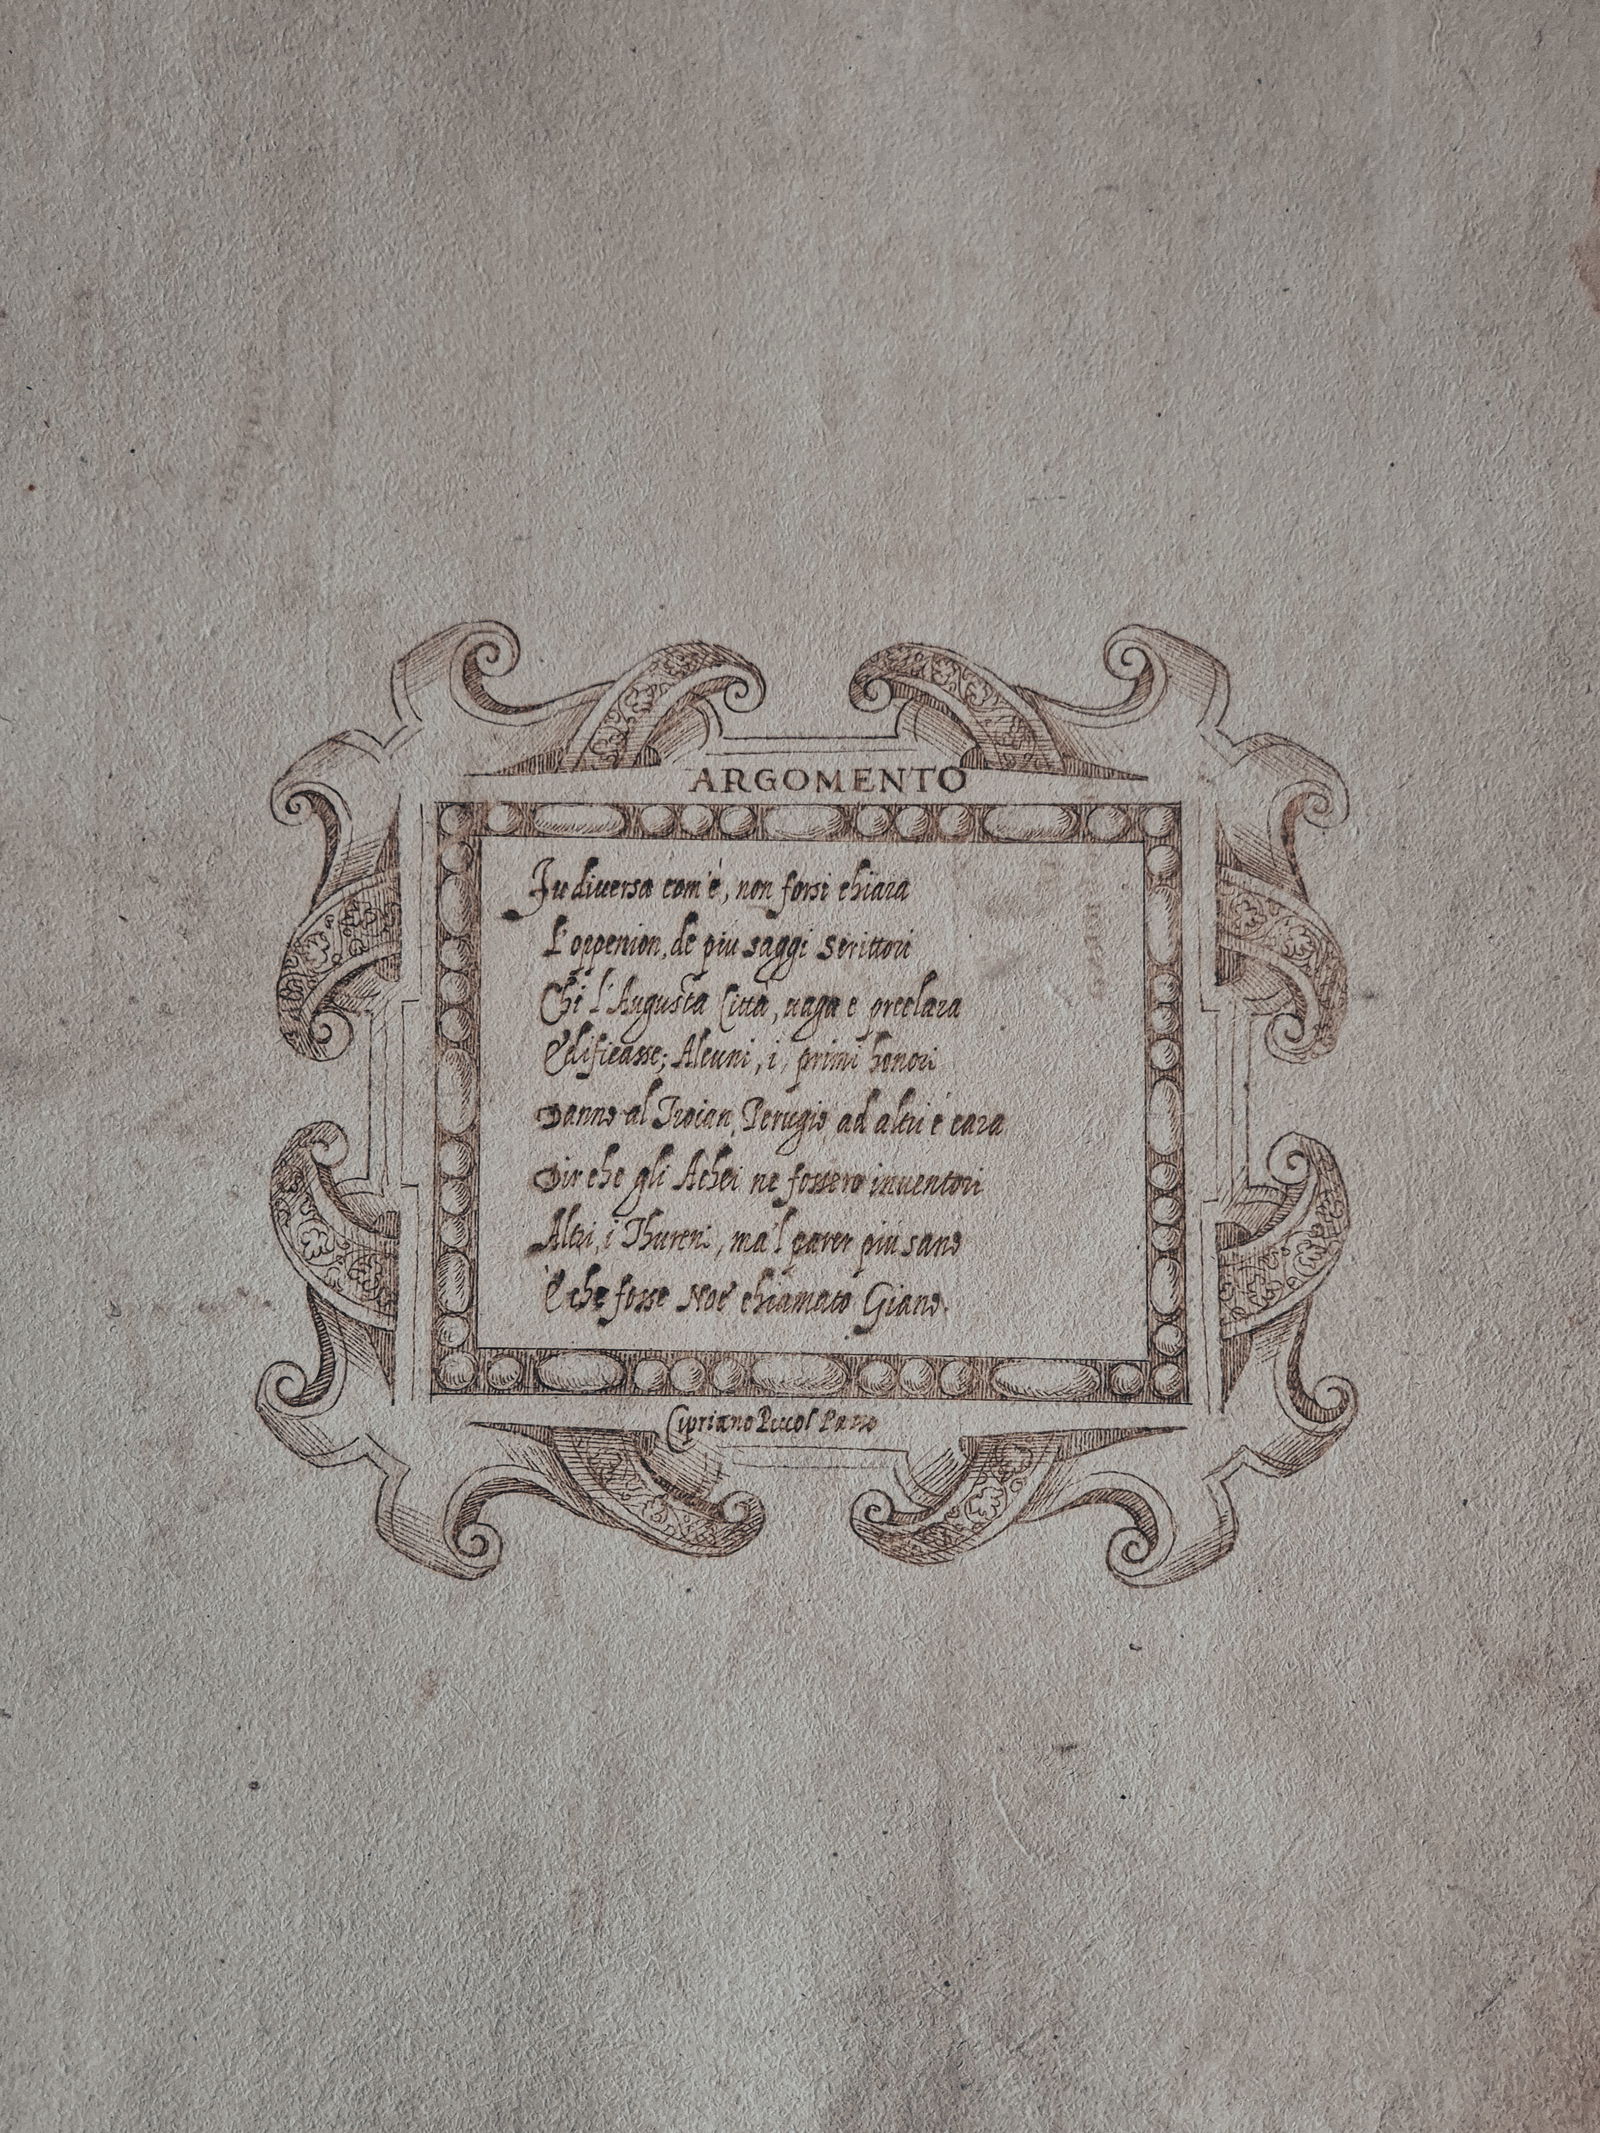 ARGOMENTO
Fu diversa com'è, non forsi chiara
L'oppenion, de piu saggi scrittori
Chi l'Augusta Città, vaga e preclara
Edificasse; Alcuni, i, primi honori
Danno al Troian Perugio, ad altri è cara
Dir che gli Achei ne fossero inventori
Altri, i Thureni, ma'l parer piu sano
È che fosse Noè chiamato Giano.
Cipriano Piccol Passo